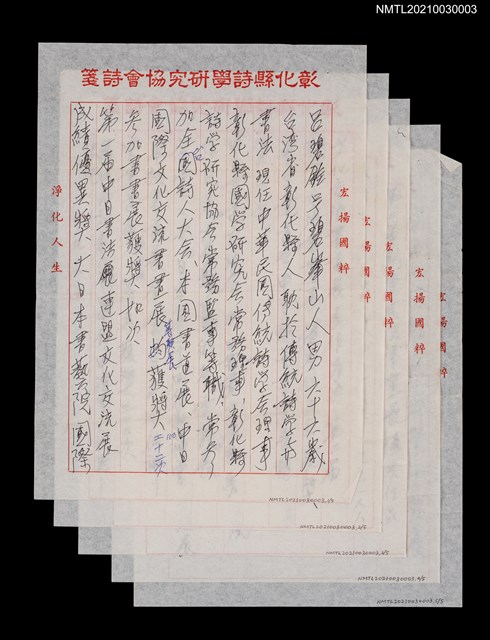 NMTL20210030003
彰化縣詩學研究協會詩箋
呂碧銓号碧峯山人男六十六歲
台湾省彰化縣人耽於傳統詩学与
書法現任中華民国傳統詩学会理事
彰化縣國学研究会常務理事、彰化縣
詩学研究協会常務監事等職、常参
加全国詩人大会、本国書道展、中日
國際文化交流書畫展均獲獎二十一次
参加書畫展獲獎如次
第一届中日書法展連盟文化交流展
成績優異獎、大日本書藝院國際
宏揚國粹
淨化人生
宏揚國粹
宏揚國粹
宏揚國粹
宏揚國粹
NMTL20210030003,1/5
NMTL20210030003,2/5
NMTL20210030003,3/5
NMTL20210030003,4/5
NMTL20210030003,5/5